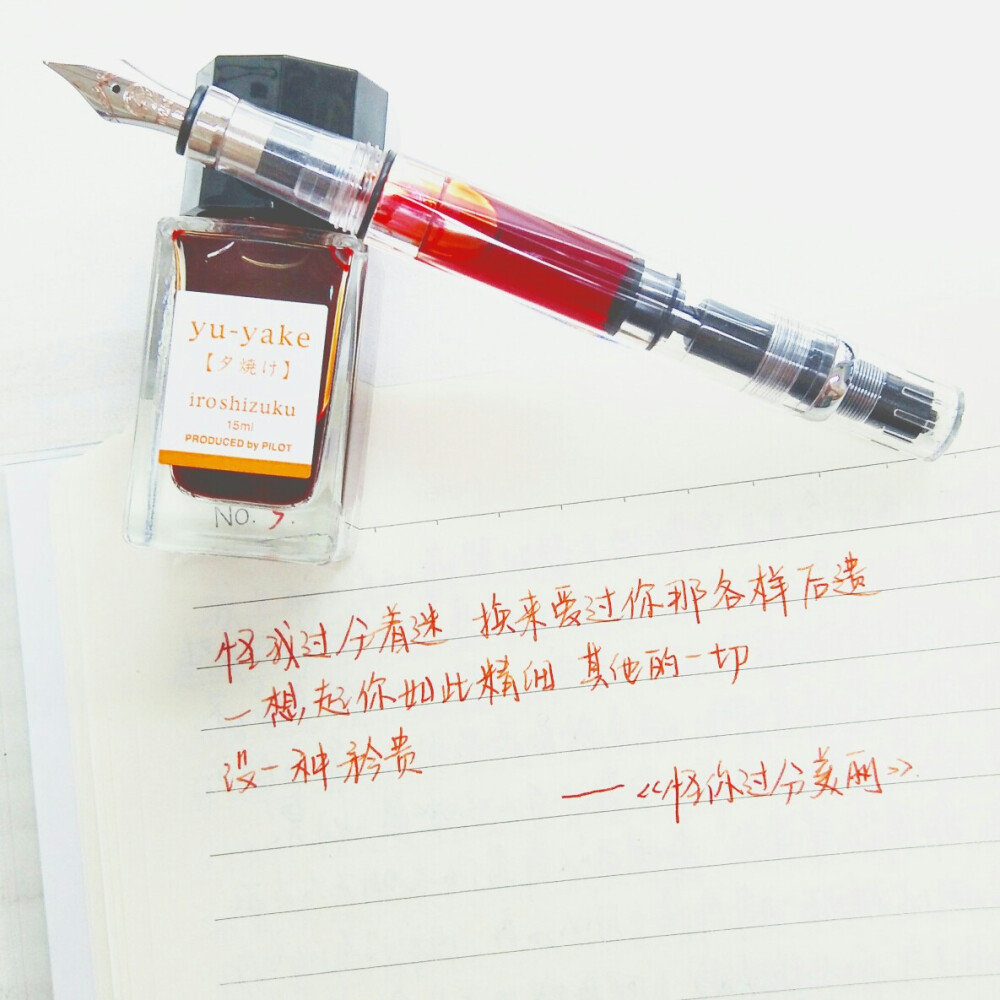 yu-yake
【夕焼け】
iroshizuku
15ml
PRODUCED by PILOT
NO. 7.
怪我过分着迷 换来爱过你那各样后遗
一想起你如此精细 其他的一切
没一种矜贵
——《怪你过分美丽》